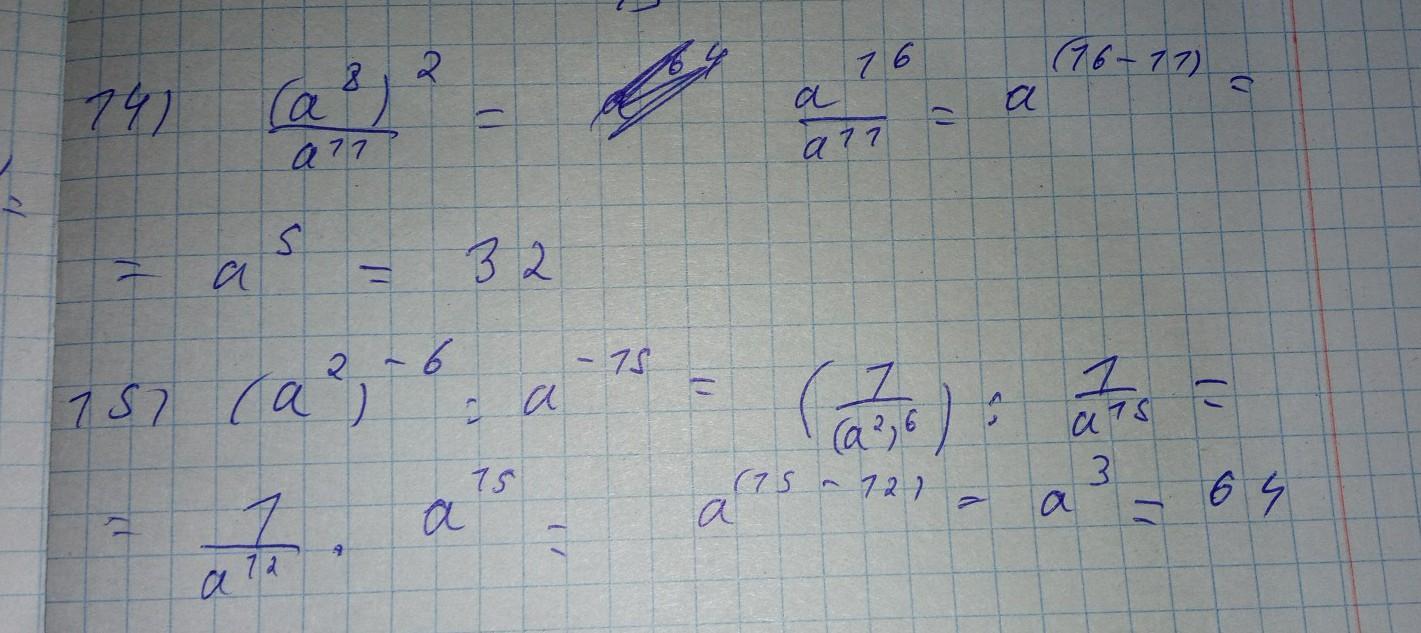 14) (a^8)^2 / a^11 = a^16 / a^11 = a^(16-11) =
= a^5 = 32
15) (a^2)^-6 : a^-15 = (1 / (a^2)^6) : 1 / a^15 =
= 1 / a^12 · a^15 = a^(15-12) = a^3 = 64